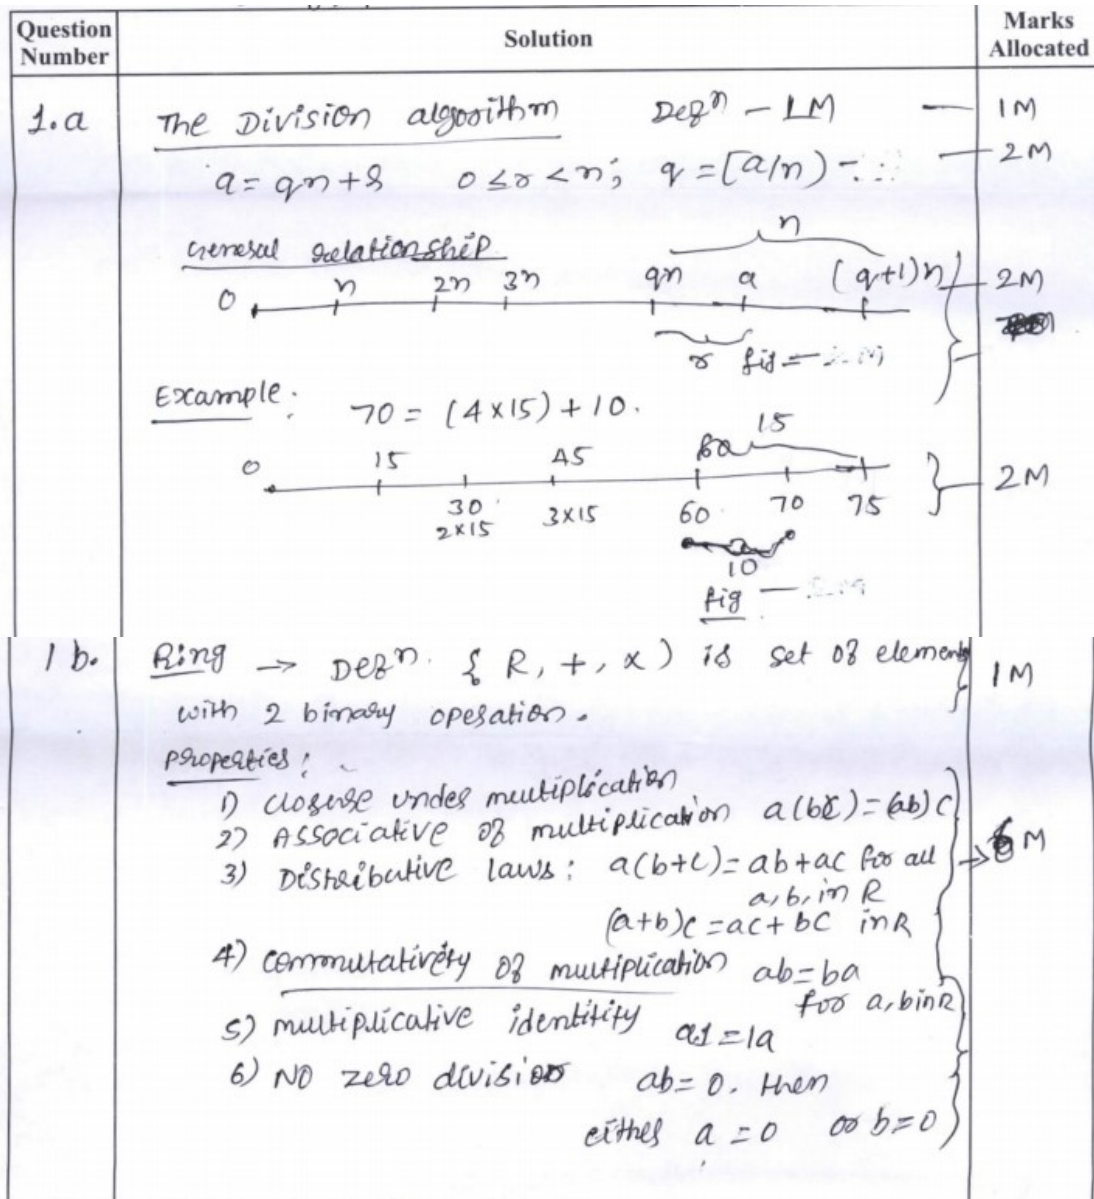 Question Number
Solution
Marks Allocated
1.a The Division algorithm Defn - 1M — 1M
a = qn + r 0 ≤ r < n; q = [a/n) - — 2M
General relationship
n
0 n 2n 3n qn a (q+1)n — 2M
r fig -
Example: 70 = (4 x 15) + 10.
15
0 15 45
30 3x15 60 70 75 — 2M
2x15
10
fig —
1 b. Ring → Defn. { R, +, x ) is set of elements 1M
with 2 binary operation.
properties:
1) closure under multiplication
2) Associative of multiplication a(bc) = (ab)c
3) Distributive laws: a(b+c) = ab+ac for all → 6M
a, b, in R
(a+b)c = ac + bc in R
4) commutativity of multiplication ab=ba
for a, b in R
5) multiplicative identitity a1 = 1a
6) No zero division ab = 0. then
either a = 0 or b = 0